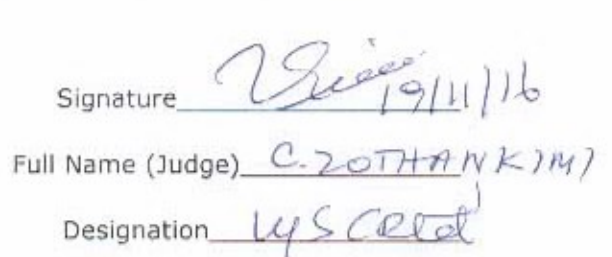 Signature 19/11/16
Full Name (Judge) C. ZOTHANKIMI
Designation